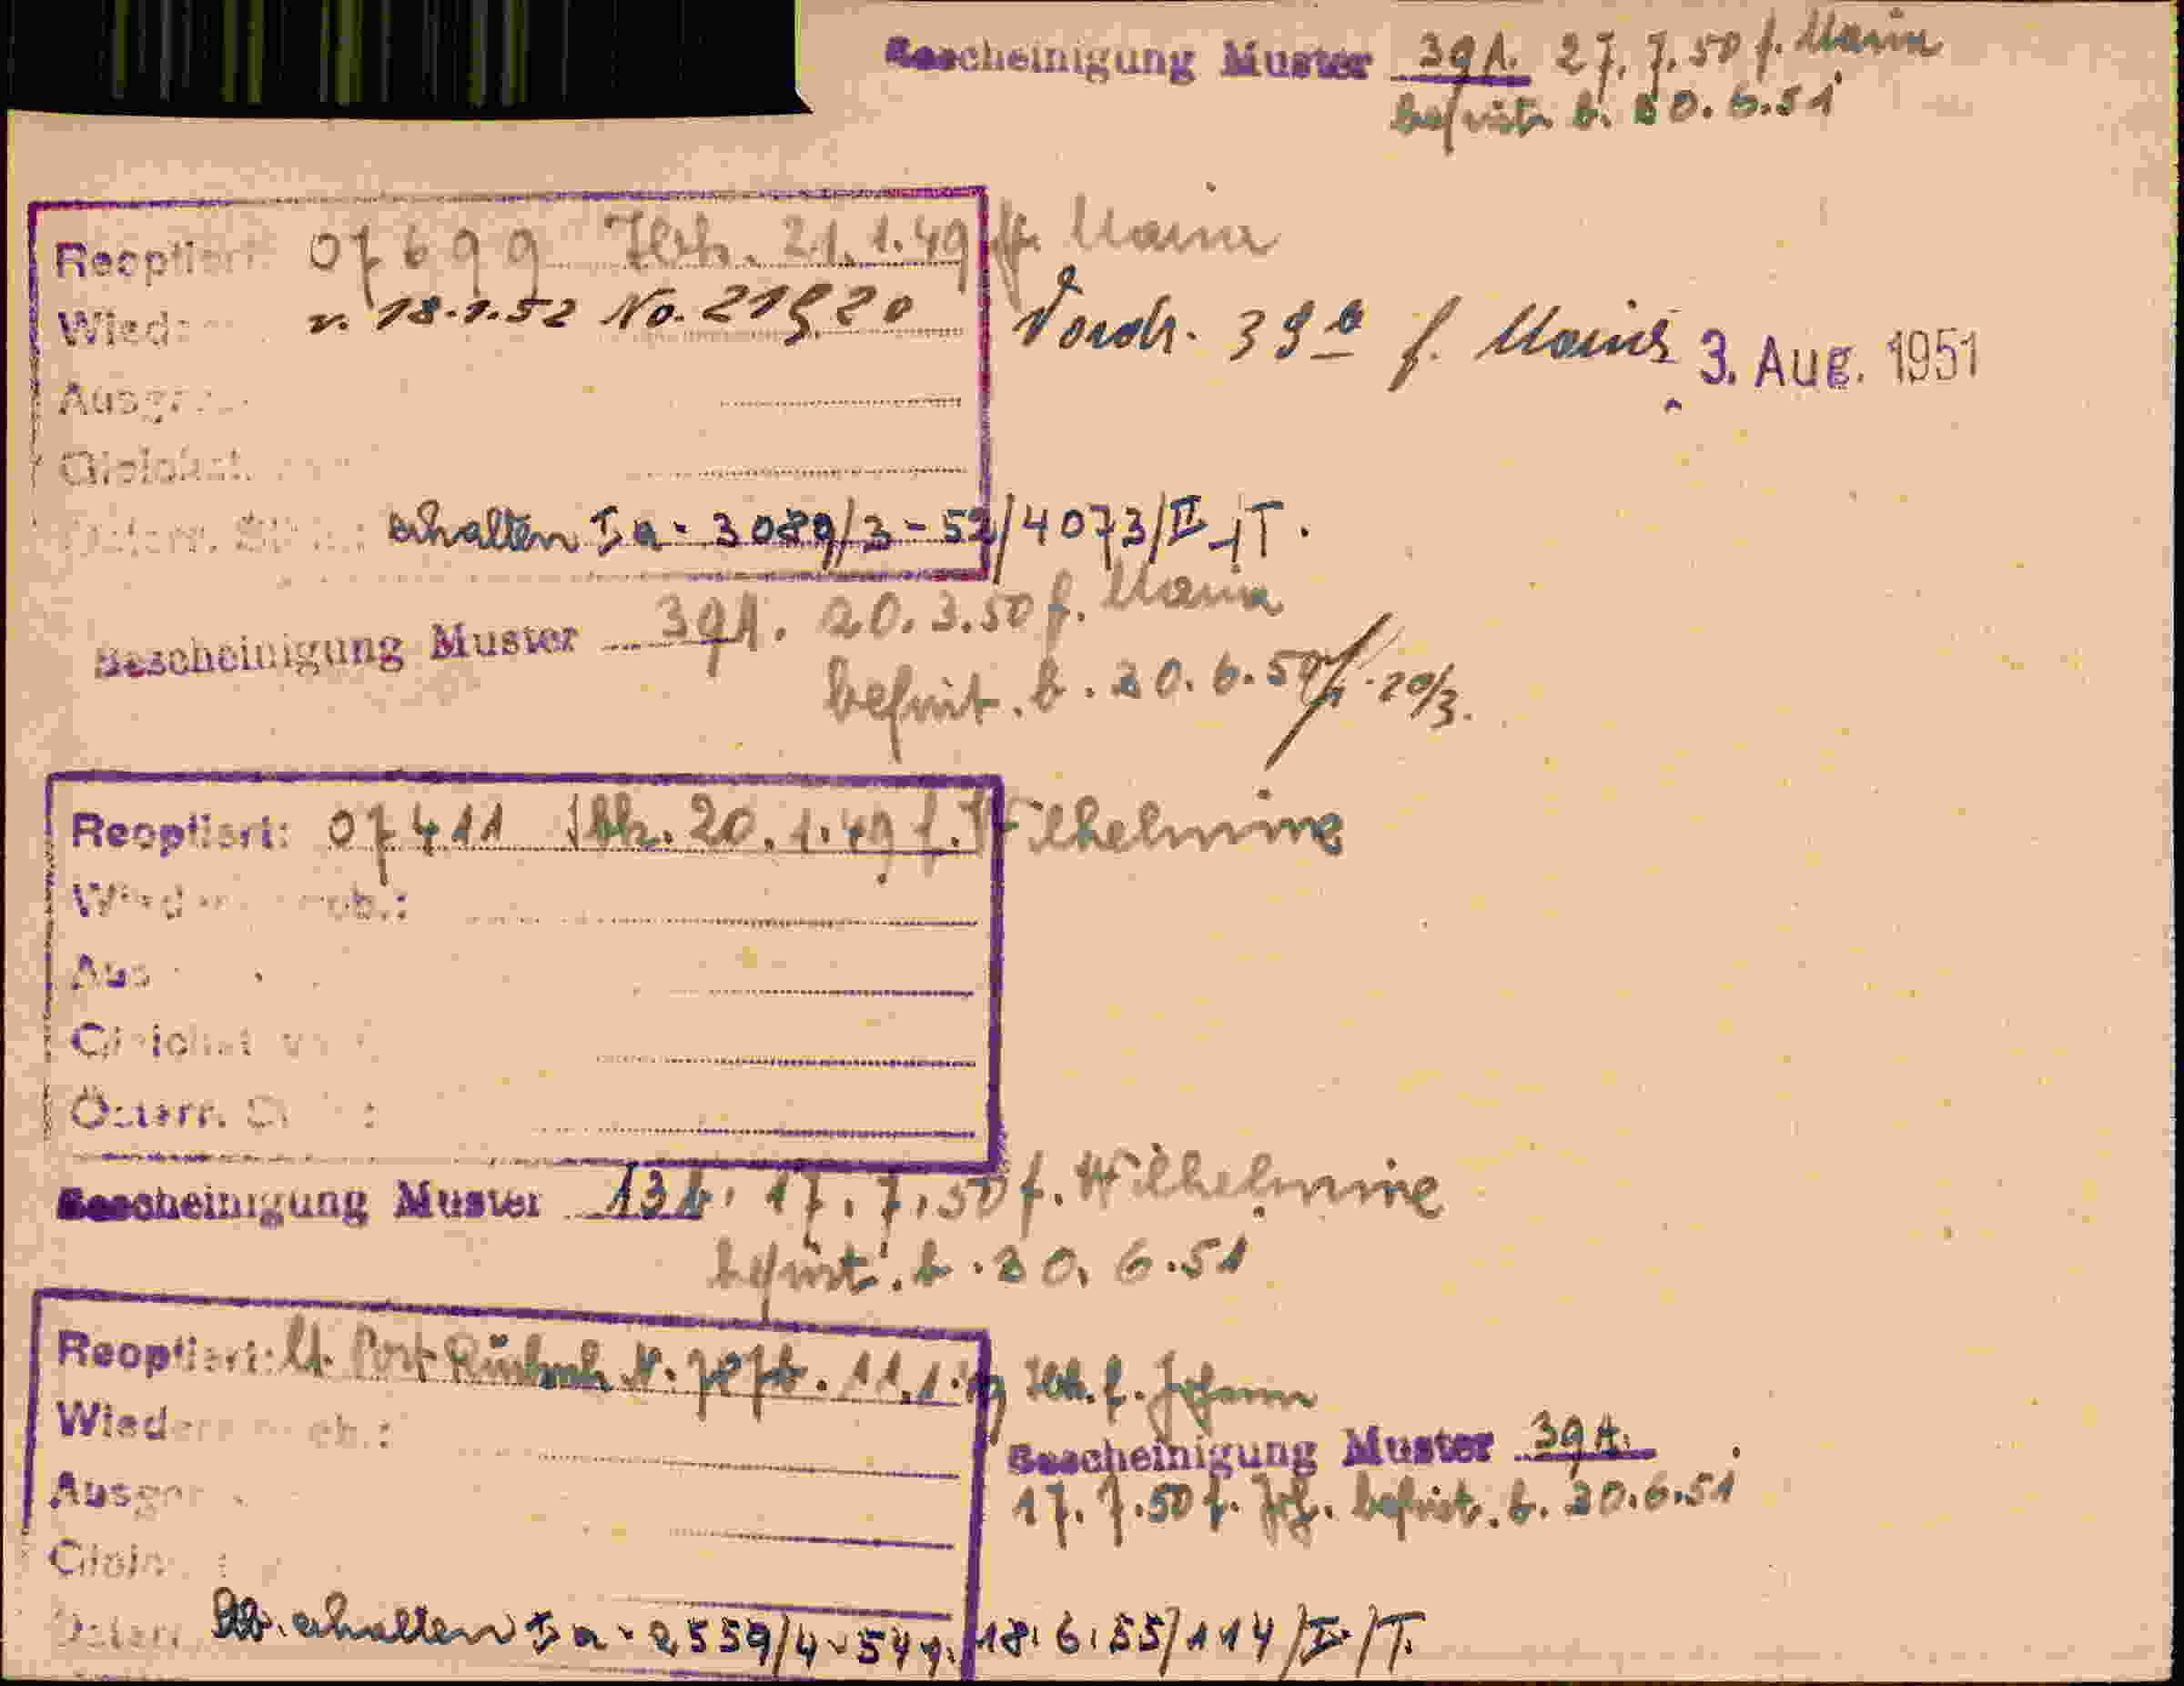 Bescheinigung Muster 39A. 27.7.50 f. Maria
befrist. b. 30.6.51
Reoptiert: 07699 Ibk. 21.1.49 f. Maria
Wied v. 18.1.52 No. 21920
Vordr. 39a f. Maria 3. Aug. 1951
Ausge
Gleichst.
Österr. St erhalten Ia-3089/3-52/4073/II/T.
Bescheinigung Muster 39A. 20.3.50 f. Maria
befrist. b. 20.6.50 20/3.
Reoptiert: 07411 Ibk. 20.1.49 f. Wilhelmine
Wied eb.:
Aus
Gleichst
Österr. S :
Bescheinigung Muster 17.7.50 f. Wilhelmine
befrist. b. 30.6.51
Reoptiert: lt. 11.1.49 Ibk. f. Johann
Wieder eb.:
Bescheinigung Muster 39A.
Ausge
17.7.50 f. Joh. befrist. b. 30.6.51
Gleich
Österr. erhalten Ia-2559/4-54 v. 18.6.55/114/I/T.